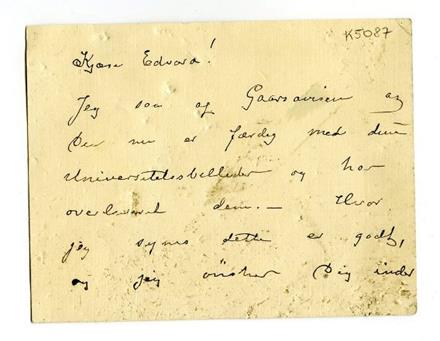 K5087
Kjære Edvard!
Jeg saa af Gaarsavisen at
Du nu er færdig med dine
Universitetsbilleder og har
overleveret dem. — Hvor
jeg synes dette er godt,
og jeg ønsker Dig inder